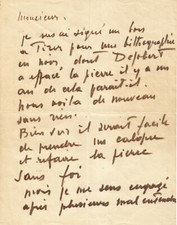 Monsieur.
je vous ai signé un bon
à Tirer pour une lithographie
en noir dont Desjobert
a effacé la pierre il y a un
an de cela parait il.
nous voila de nouveau
sans rien.
Bien sur il serait facile
de prendre un calque
et refaire la pierre
sans foi
mais je me sens engagé
après plusieurs mal entendus